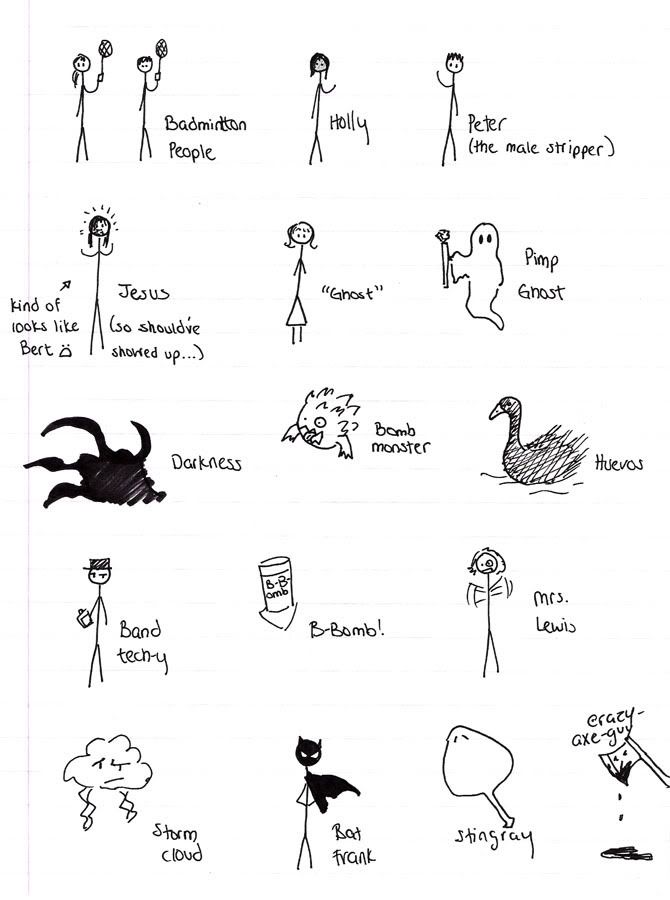 Badminton
People
Holly
Peter
(the male stripper)
kind of
looks like
Bert
Jesus
(so should've
showed up...)
"Ghost"
Pimp
Ghost
Darkness
Bomb
monster
Huevos
Band
tech-y
B-B-
omb
B-Bomb!
Mrs.
Lewis
Storm
cloud
Bat
Frank
Stingray
crazy-
axe-guy